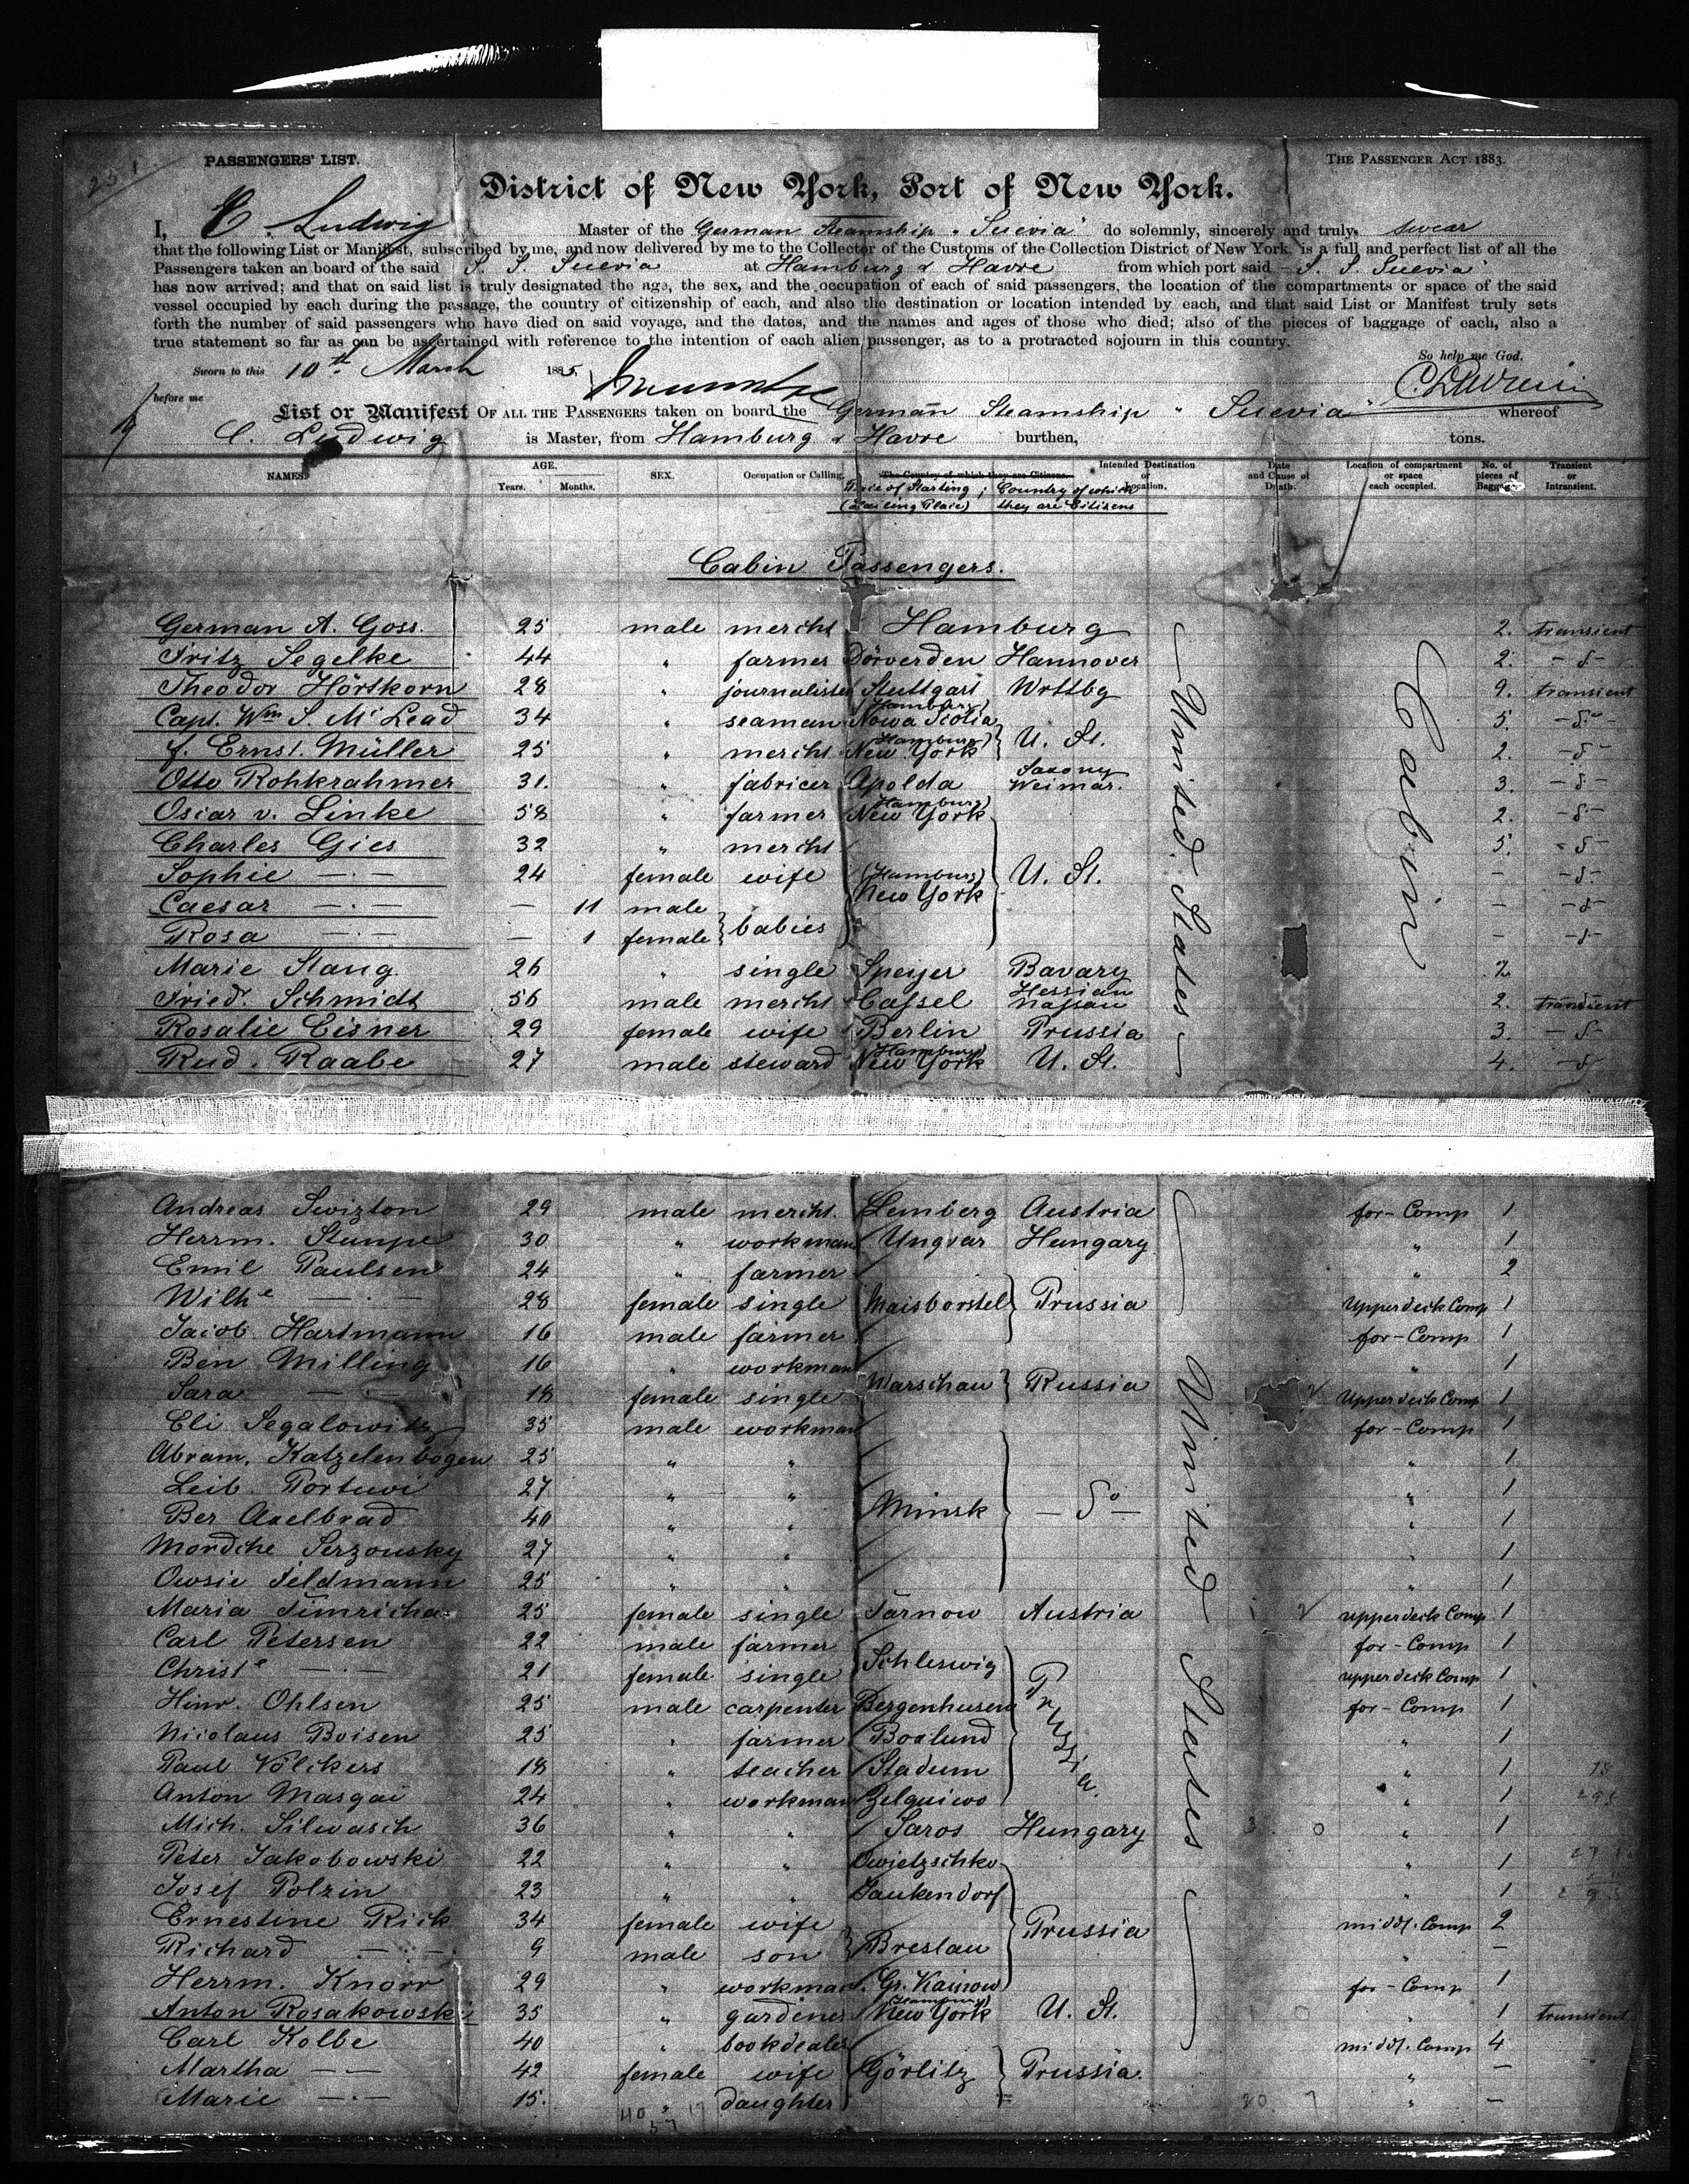 251
PASSENGERS' LIST.
THE PASSENGER ACT 1883.
District of New York, Port of New York.
I, C. Ludwig Master of the German Steamship "Suevia" do solemnly, sincerely and truly swear
that the following List or Manifest, subscribed by me, and now delivered by me to the Collector of the Customs of the Collection District of New York, is a full and perfect list of all the
Passengers taken an board of the said S. S. Suevia at Hamburg & Havre from which port said S. S. Suevia
has now arrived; and that on said list is truly designated the age, the sex, and the occupation of each of said passengers, the location of the compartments or space of the said
vessel occupied by each during the passage, the country of citizenship of each, and also the destination or location intended by each, and that said List or Manifest truly sets
forth the number of said passengers who have died on said voyage, and the dates, and the names and ages of those who died; also of the pieces of baggage of each, also a
true statement so far as can be ascertained with reference to the intention of each alien passenger, as to a protracted sojourn in this country.
So help me God.
Sworn to this 10th March 1885
before me
List or Manifest OF ALL THE PASSENGERS taken on board the German Steamship "Suevia" whereof
C. Ludwig is Master, from Hamburg & Havre burthen, tons.
NAMES. AGE. Years. Months. SEX. Occupation or Calling. The Country of which they are Citizens. Intended Destination or Location. Date and Cause of Death. Location of compartment or space each occupied. No. of pieces of Baggage. Transient or Intransient.
Place of Starting ; Country of which
they are Citizens
Cabin Passengers.
German A. Goss. 25 male mercht Hamburg 2. transient
Fritz Segelke 44 " farmer Dörverden Hannover 2. - d -
Theodor Hörtkorn 28 " journaliste Stuttgart Wrttbg 9. transient
Capt. Wm S. Mc Lead 34 " seaman (Hamburg) Nowa Scotia 5. - d -
f. Ernst. Müller 25 " mercht (Hamburg) New York U. St. 2. - d -
Otto Rohkrahmer 31. " fabricer Apolda Saxony Weimar. 3. - d -
Oscar v. Linke 58 " farmer (Hamburg) New York 2. - d -
Charles Gies 32 " mercht 5. - d -
Sophie - . - 24 female wife (Hamburg) New York U. St. - - d -
Caesar - . - - 11 male - - d -
Rosa - . - - 1 female babies - - d -
Marie Stang 26 " single Speyer Bavary 2
Fried. Schmidt 56 male mercht Cassel Hessian Nassau 2. transient
Rosalie Eisner 29 female wife Berlin Prussia 3. - d -
Rud. Raabe 27 male steward (Hamburg) New York U. St. 4. - d
United States
Cabin
Andreas Swizton 29 male mercht. Lemberg Austria for-Comp 1
Herrm. Stumpe 30 " workman Ungvar Hungary " 1
Emil Paulsen 24 " farmer " 2
Wilhe - . - 28 female single Maisborstel Prussia Upperdeck Comp 1
Jacob Hartmann 16 male farmer for-Comp 1
Ben Milling 16 " workman " 1
Sara - . - 18 female single Warschau Russia Upperdeck Comp 1
Eli Segalowitz 35 male workman for-Comp 1
Abram. Katzelenbogen 25 " " " 1
Leib. Portuwi 27 " " " 1
Ber Axelbrad 40 " " Minsk - do - " 1
Mordche Serzousky 27 " " " 1
Owsie Feldmann 25 " " " 1
Maria Timricha 25 female single Tarnow Austria upperdeck Comp. 1
Carl Petersen 22 male farmer for-Comp 1
Christe - . - 21 female single Schleswig upperdeck Comp 1
Hinr. Ohlsen 25 male carpenter Bergenhusen Prussia for-Comp 1
Nicolaus Boisen 25 " farmer Boxlund " 1
Paul Völckers 18 " teacher Stadum " 1
Anton Masgai 24 " workman Zelguiwo " 1
Mich. Silwasch 36 " " Saros Hungary " 1
Peter Jakobowski 22 " " Owietzschko " 1
Josef Polzin 23 " " Jaukendorf " 1
Ernestine Rick 34 female wife Prussia middl. Comp 2
Richard - . - 9 male son Breslau " -
Herrm. Knorr 29 " workman Gr. Kainow for-Comp 1
Anton Rosakowski 35 " gardener (Hamburg) New York U. St. " 1 transient
Carl Kolbe 40 " bookdealer middl. Comp 4
Martha - - 42 female wife Görlitz Prussia. " -
Marie - . - 15. " daughter " -
United States